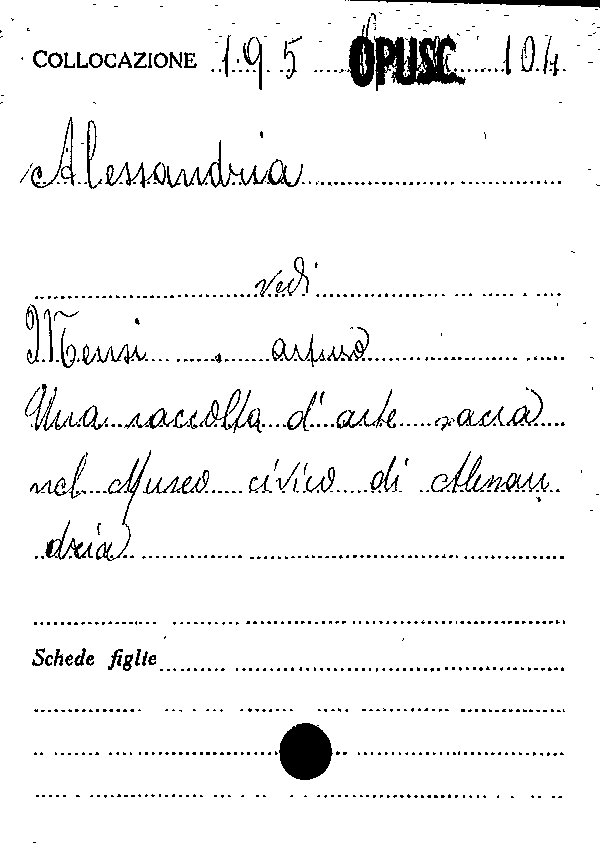 COLLOCAZIONE 195 OPUSC. 104
Alessandria
vedi
Mensi . arturo
Una raccolta d'arte sacra
nel Museo civico di Alessan
dria
Schede figlie